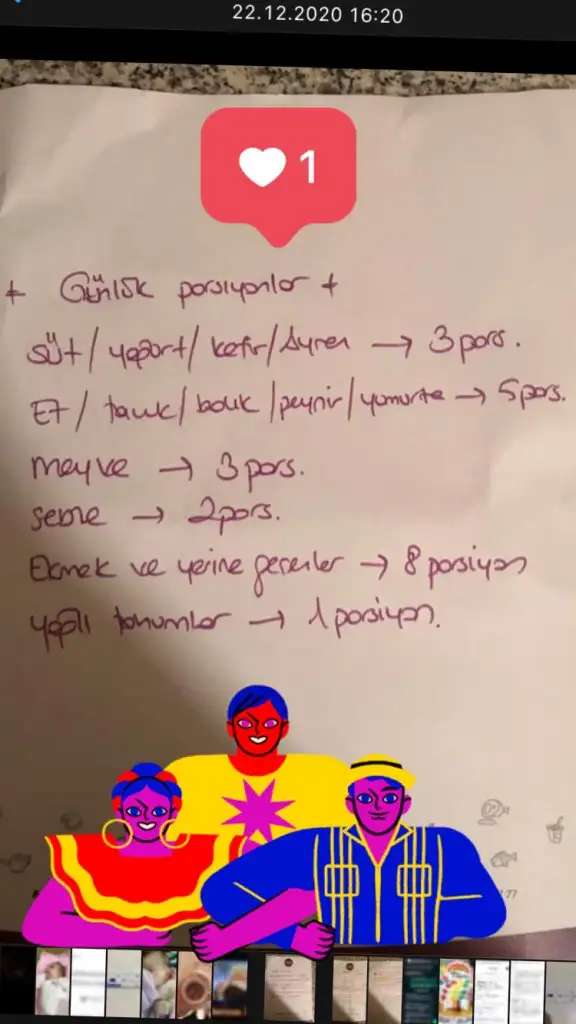 22.12.2020 16:20
1
+ Günlük porsiyonlar +
Süt / yoğurt / kefir / Ayran → 3 pors.
Et / tavuk / balık / peynir / yumurta → 5 pors.
meyve → 3 pors.
sebze → 2 pors.
Ekmek ve yerine geçenler → 8 porsiyon
yağlı tohumlar → 1 porsiyon.
77